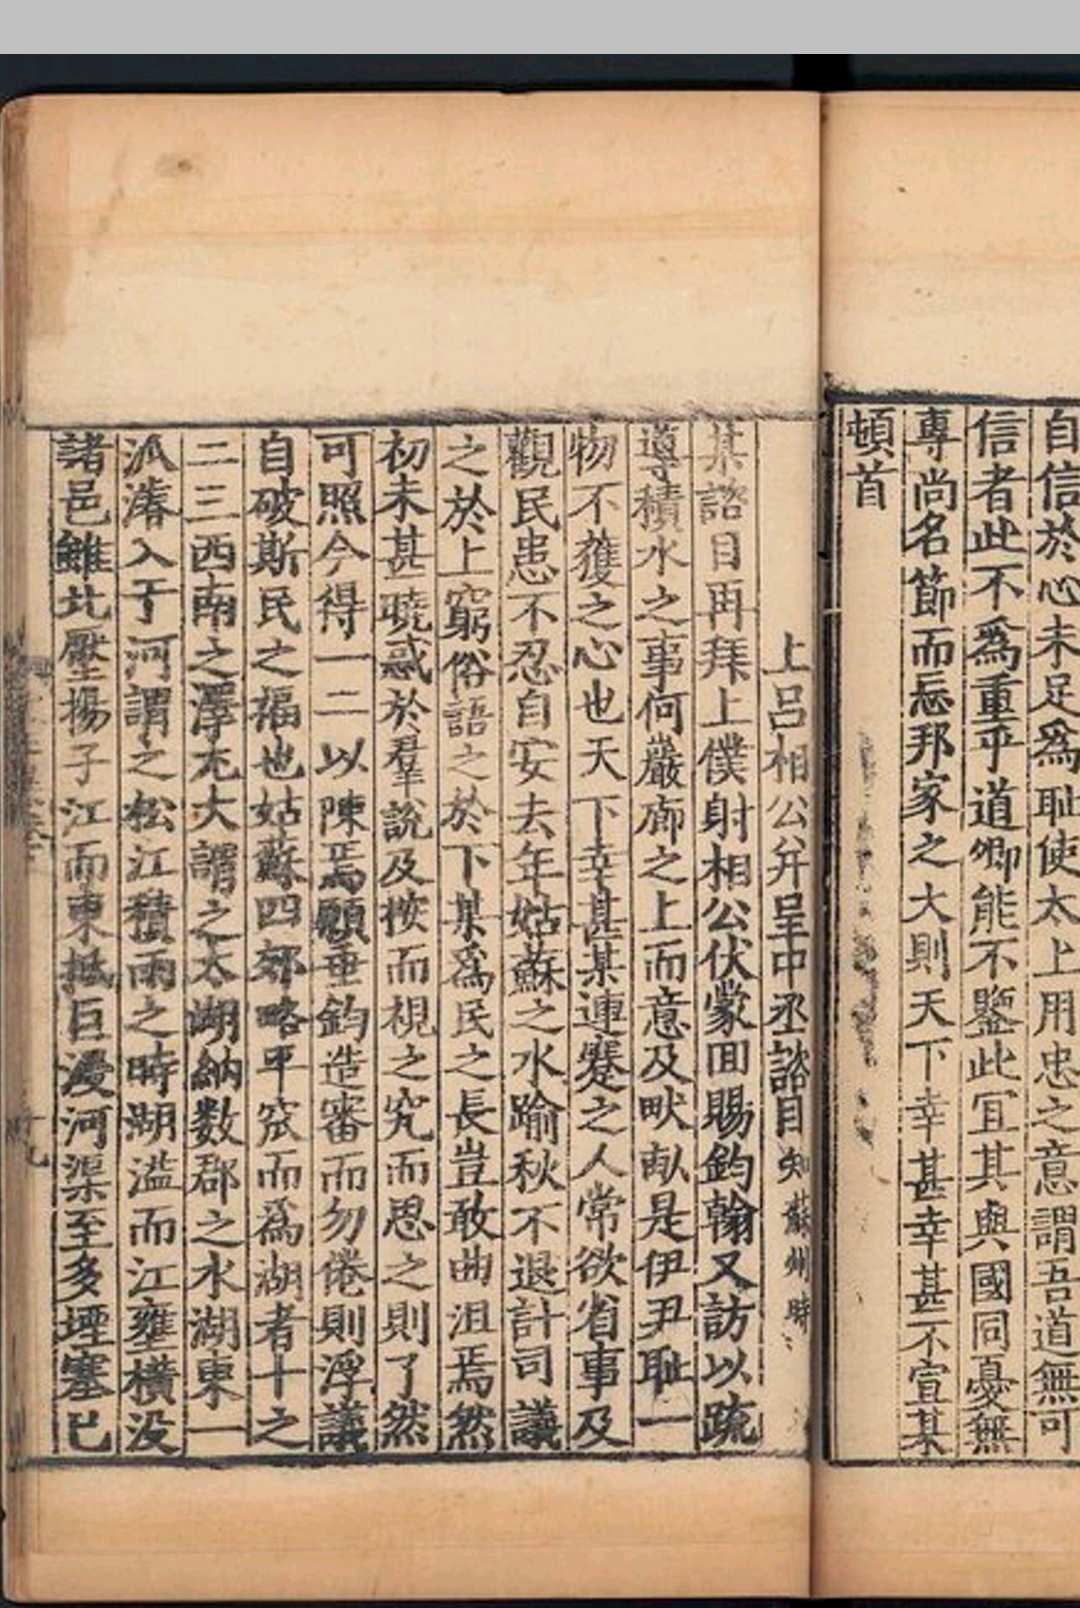 自信於心未足爲恥使太上用忠之意謂吾道無可
信者此不爲重乎道卿能不鑒此宜其與國同憂無
專尚名節而忘邦家之大則天下幸甚幸甚不宣某
頓首
上呂相公幷呈中丞諮目知蘇州時
某諮目再拜上僕射相公伏蒙回賜鈞翰又訪以疏
導積水之事何巖廊之上而意及畎畝是伊尹恥一
物不獲之心也天下幸甚某連蹇之人常欲省事及
觀民患不忍自安去年姑蘇之水踰秋不退計司議
之於上窮俗語之於下某爲民之長豈敢曲沮焉然
初未甚曉惑於羣說及按而視之究而思之則了然
可照今得一二以陳焉願垂鈞造審而勿倦則浮議
自破斯民之福也姑蘇四郊略平窊而爲湖者十之
二三西南之澤尤大謂之太湖納数郡之水湖東一
派濬入于河謂之松江積雨之時湖溢而江壅橫没
諸邑雖北壓揚子江而東抵巨浸河渠至多堙塞已